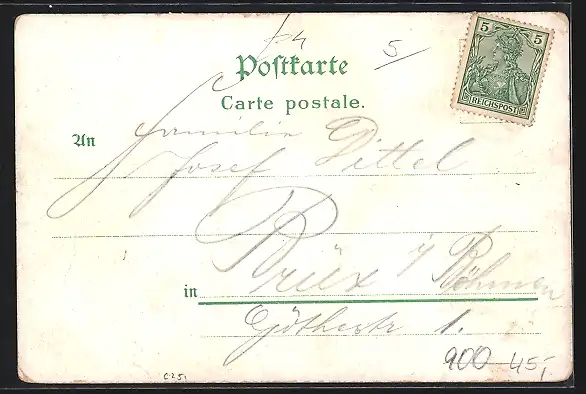 5
Postkarte
Carte postale.
5 5
REICHSPOST
An Familie
Josef Dittel
Brüx i/ Böhmen
in
Göthestr 1.
900 45,-